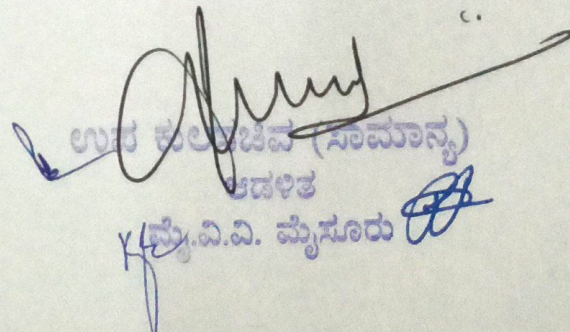 ಉಪ ಕುಲಸಚಿವ (ಸಾಮಾನ್ಯ)
ಆಡಳಿತ
ಮೈ.ವಿ.ವಿ. ಮೈಸೂರು